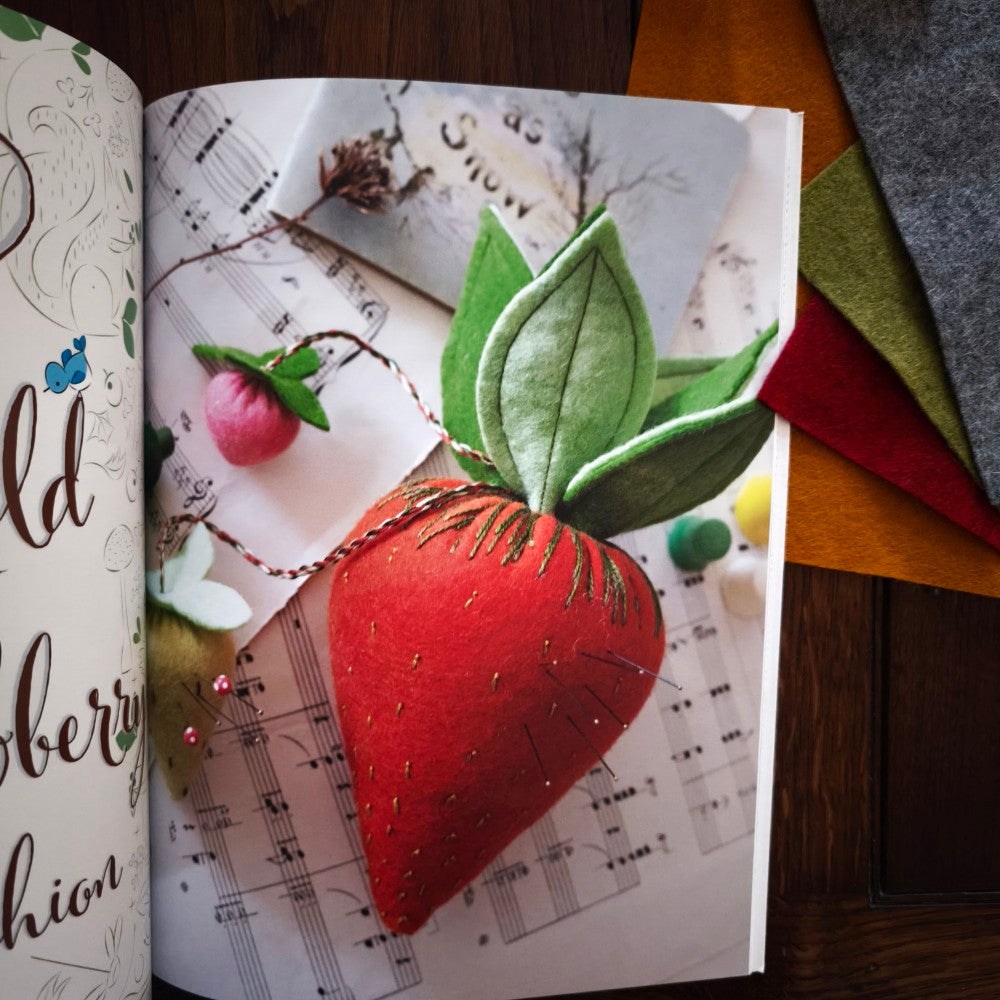 ld
berry
hion
as
Snow